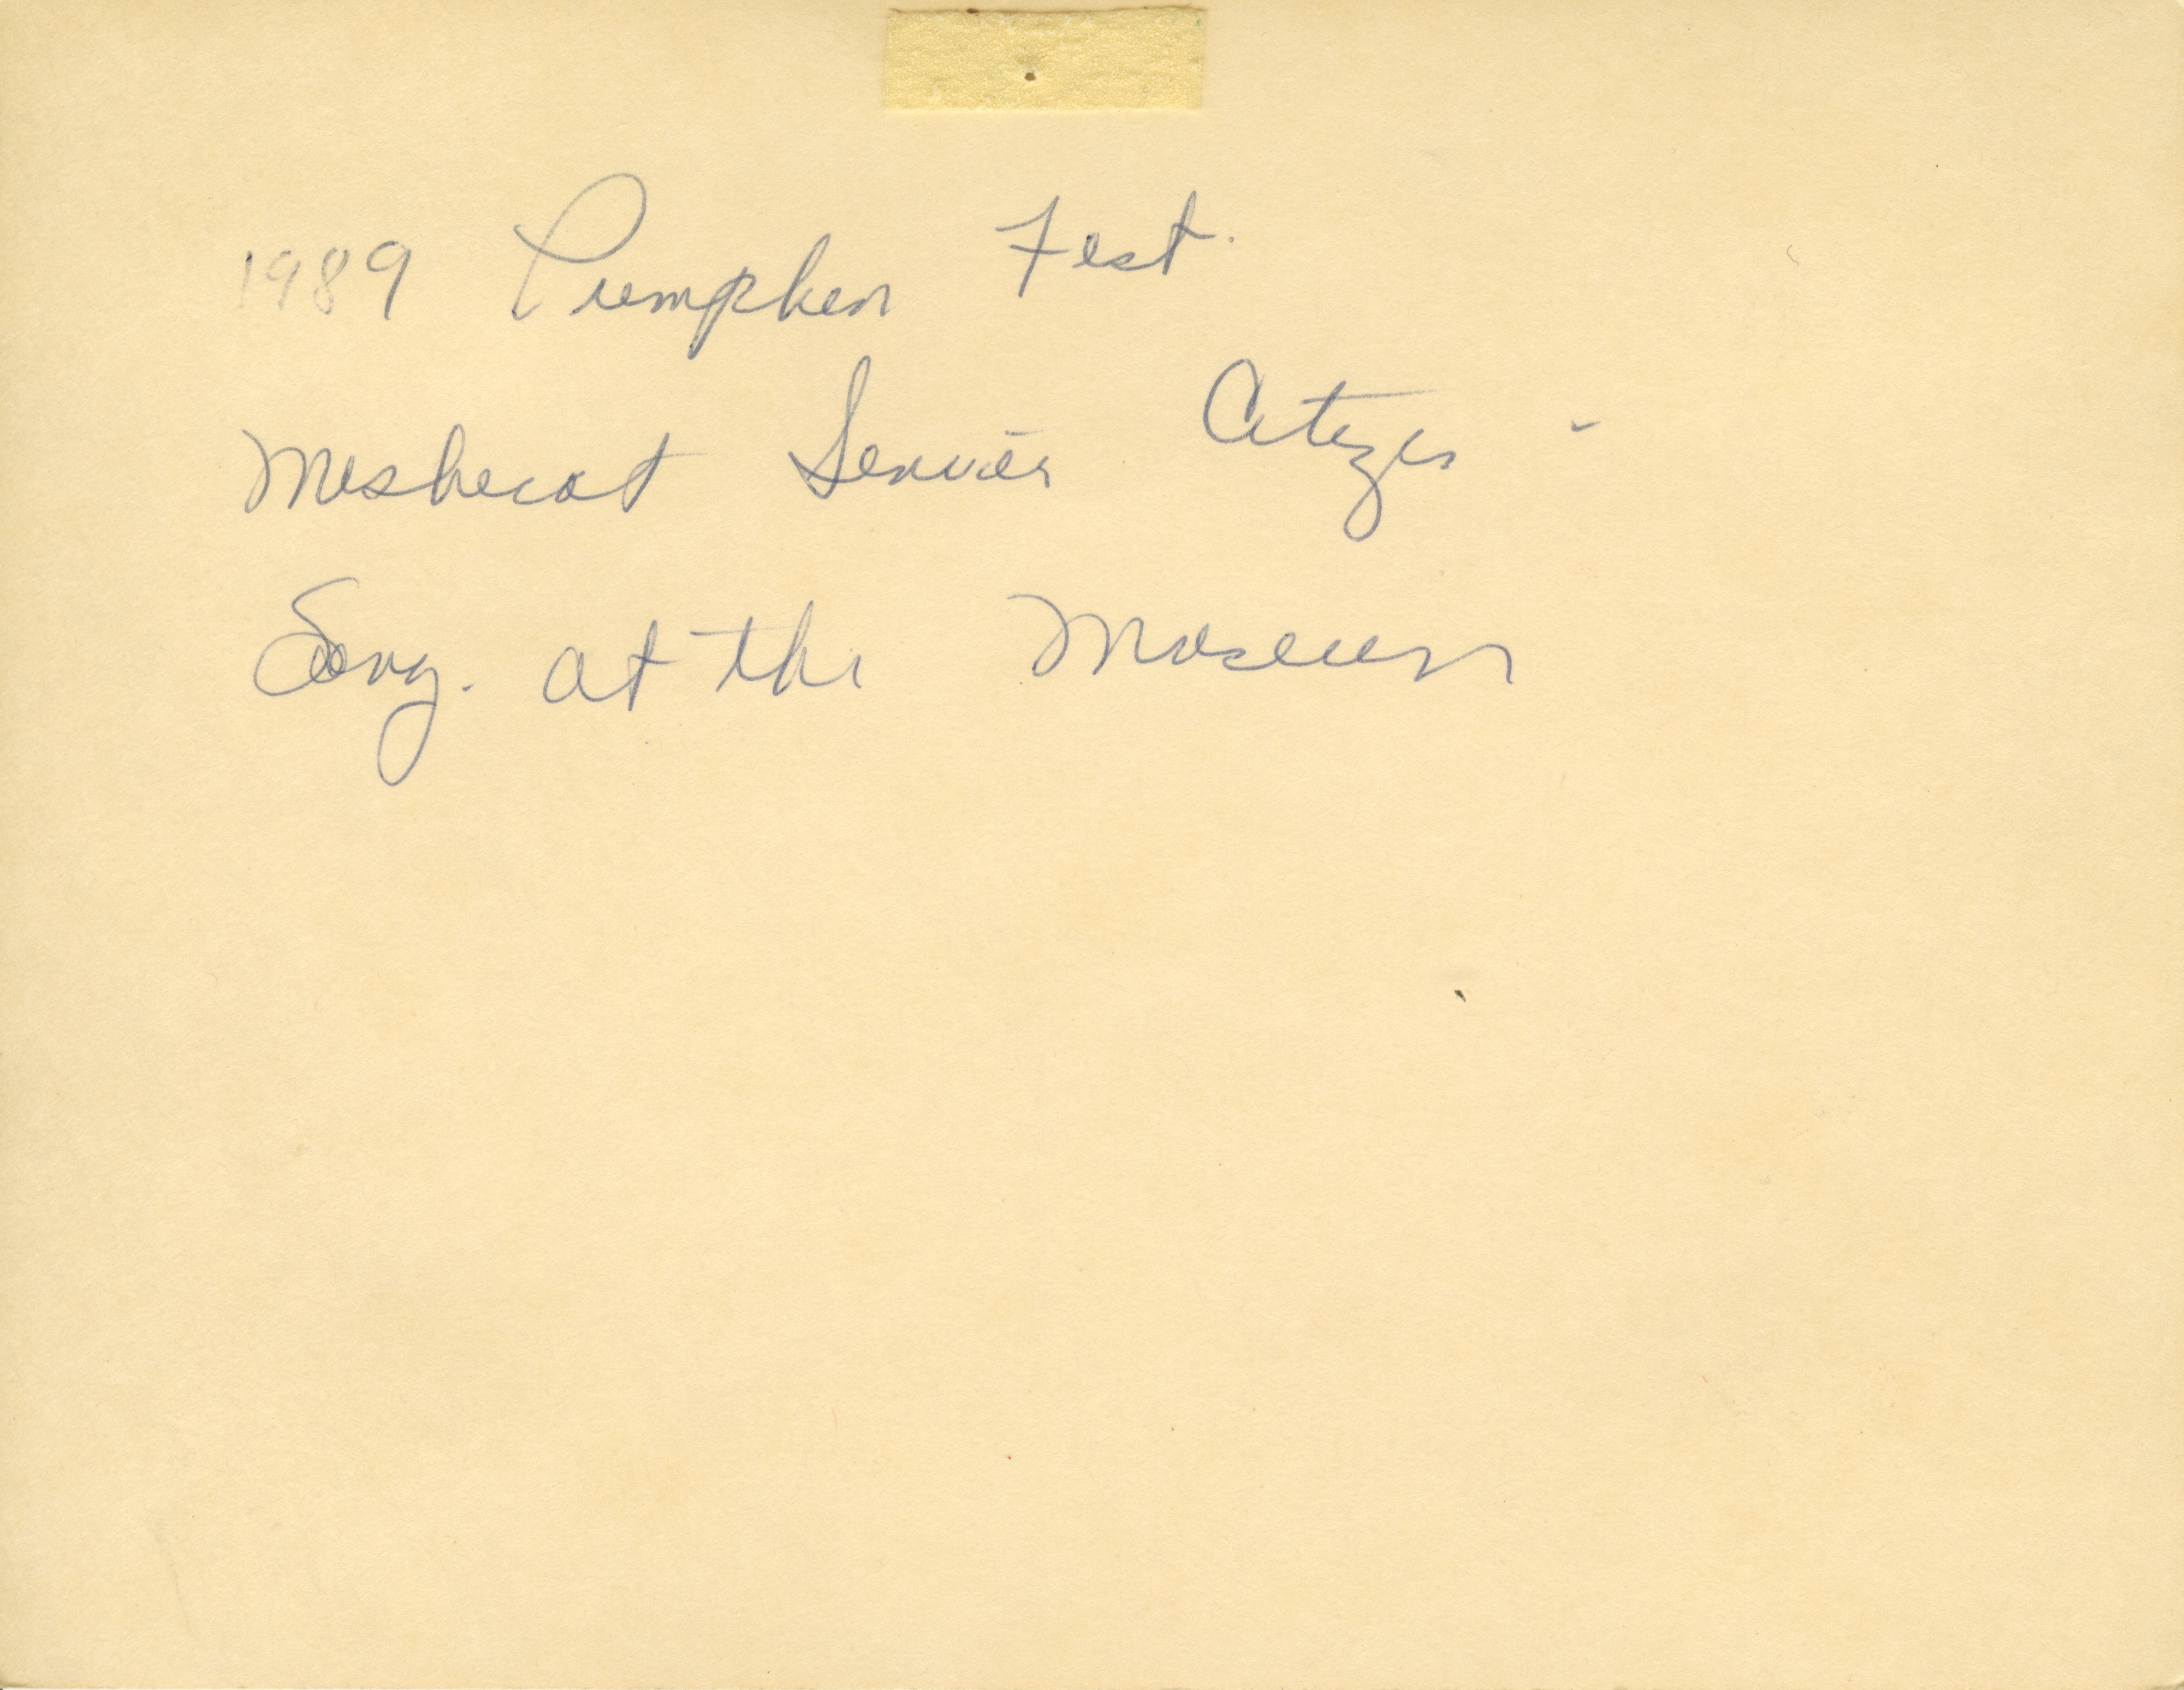 1989 Pumpkin Fest.
Mishicot Senior Citizen -
Sang. at the Museum